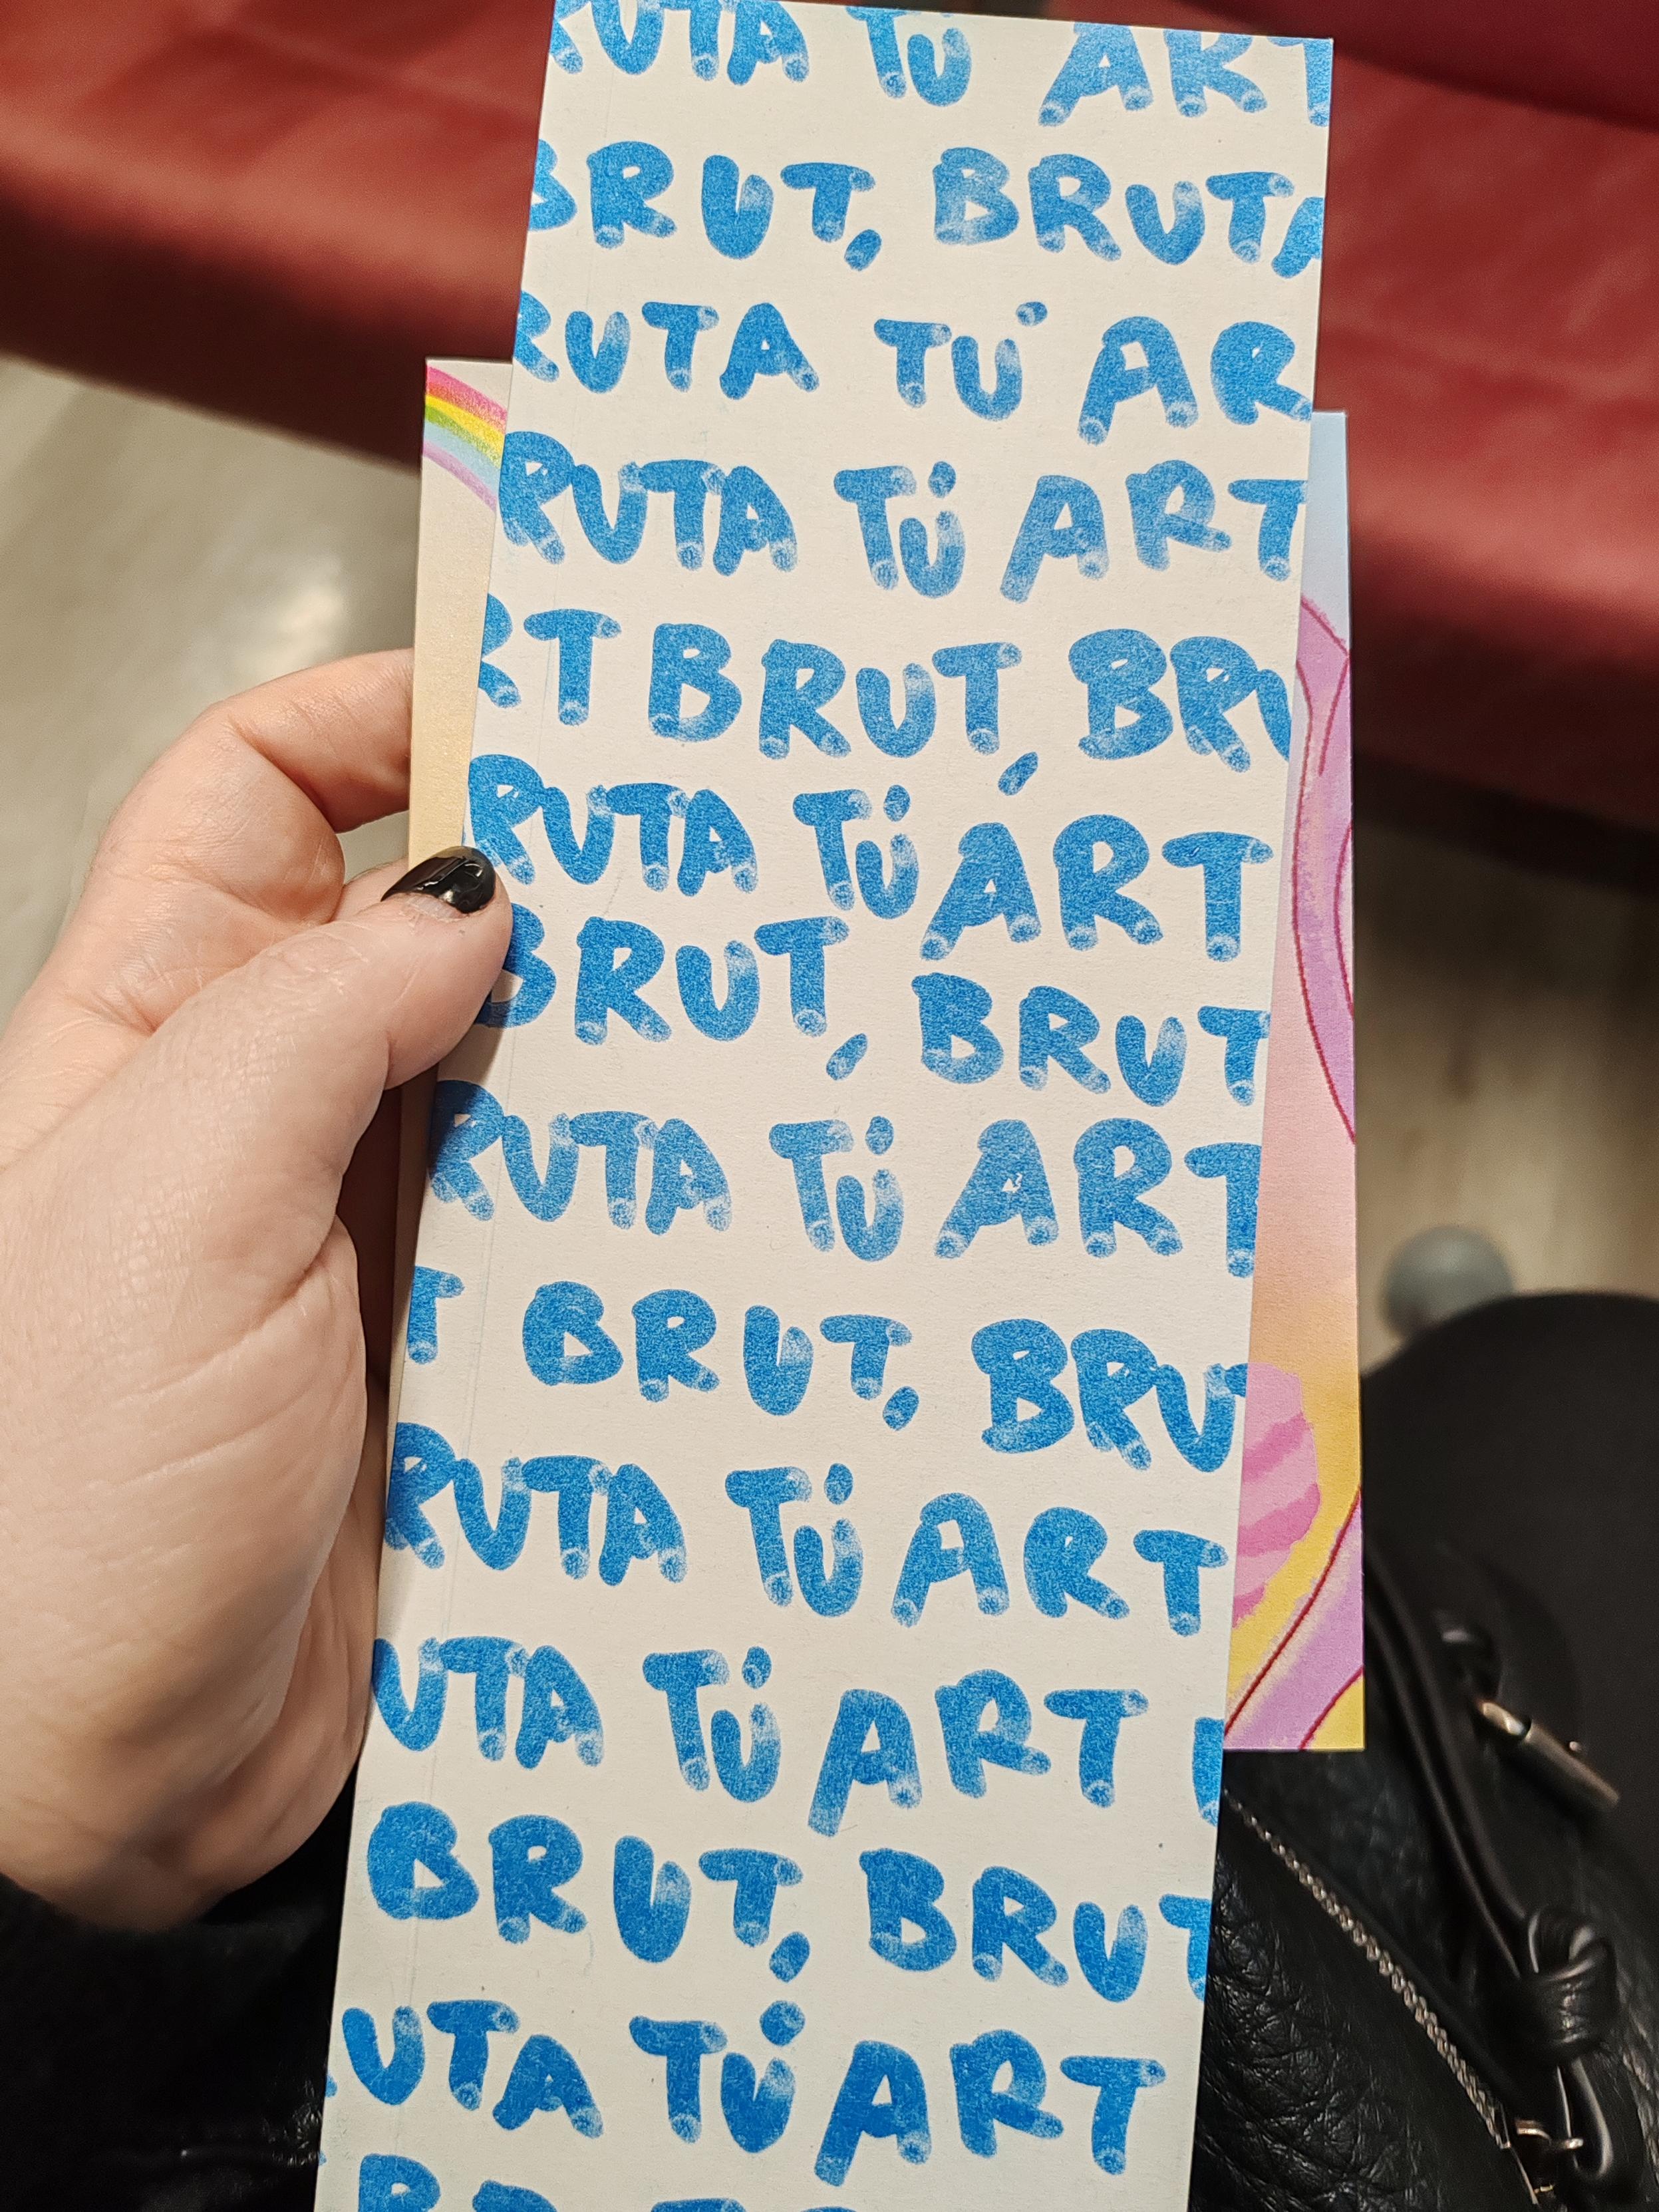 RUTA TÚ ART
BRUT, BRUTA
RUTA TÚ AR
RUTA TÚ ART
RT BRUT, BRU
RUTA TÚ ART
BRUT, BRUT
RUTA TÚ ART
T BRUT, BRU
RUTA TÚ ART
UTA TÚ ART
BRUT, BRUT
UTA TÚ ART